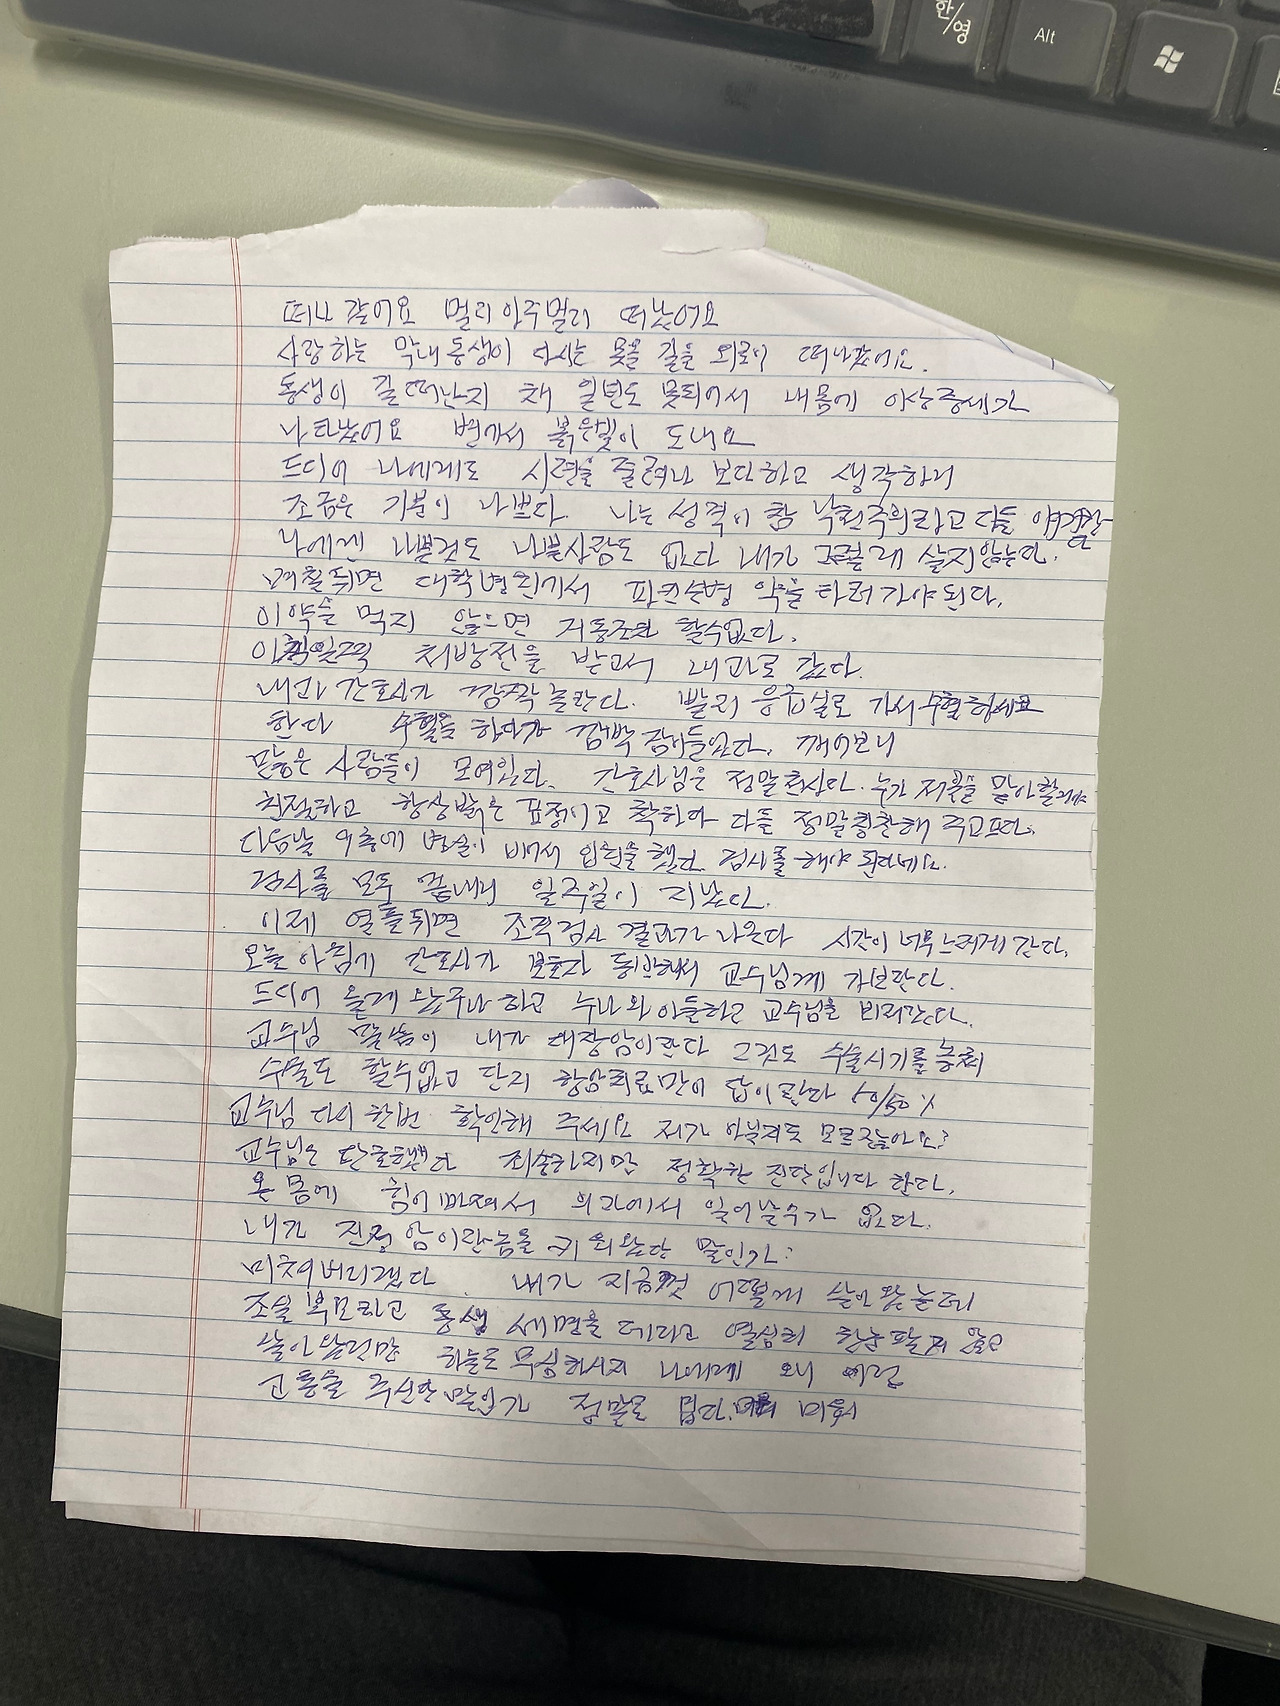 한/영 Alt
떠나 갔어요 멀리 아주멀리 떠났어요
사랑하는 막내동생이 다시는 못올 길을 외로이 떠나갔어요.
동생이 길떠난지 채 일년도 못되어서 내몸에 이상증세가
나타났어요 변에서 붉은빛이 도네요
드디어 나에게도 시련을 줄려나 보다하고 생각하니
조금은 기분이 나쁘다. 나는 성격이 참 낙천주의라고 다들
나에겐 나쁠것도 나쁠사람도 없다 내가 그렇게 살지않는다.
며칠뒤면 대학병원가서 파킨슨병 약을 타러가야된다.
이약을 먹지 않으면 거동조차 할수없다.
처방전을 받고서 내과로 갔다.
내과 간호사가 깜짝 놀란다. 빨리 응급실로 가서 수혈하세요
한다 수혈을 하다가 깜박 잠이들었다. 깨어보니
많은 사람들이 모여있다. 간호사님은 정말천사다. 누가 저분을
친절하고 항상밝은 표정이고 착하다 다들 정말칭찬해 주고프다.
다음날 9층에 병실이 비어서 입원을 했다. 검사를 해야 된다네요.
검사를 모두 끝내니 일주일이 지났다.
이제 열흘뒤면 조직검사 결과가 나온다 시간이 너무느리게 간다.
오늘 아침에 간호사가 보호자 동반해서 교수님께 가보란다.
드디어 올게 왔구나 하고 누나와 아들하고 교수님을 뵈러갔다.
교수님 말씀이 내가 대장암이란다 그것도 수술시기를 놓쳐
수술도 할수없고 단지 항암치료만이 답이란다 50/50 %
교수님 다시한번 확인해 주세요 저가 아닐지도 모르잖아요?
교수님은 단호했다 죄송하지만 정확한 진단입니다 한다.
온 몸에 힘이빠져서 의자에서 일어날수가 없다.
내가 진정 암이란놈을 키워왔단 말인가?
미쳐버리겠다 내가 지금껏 어떻게 살아왔는데
조실부모하고 동생 세명을 데리고 열심히 한눈팔지 않고
살아왔건만 하늘도 무심하시지 나에게 왜 이런
고통을 주신단말인가 정말로 밉다. 미워